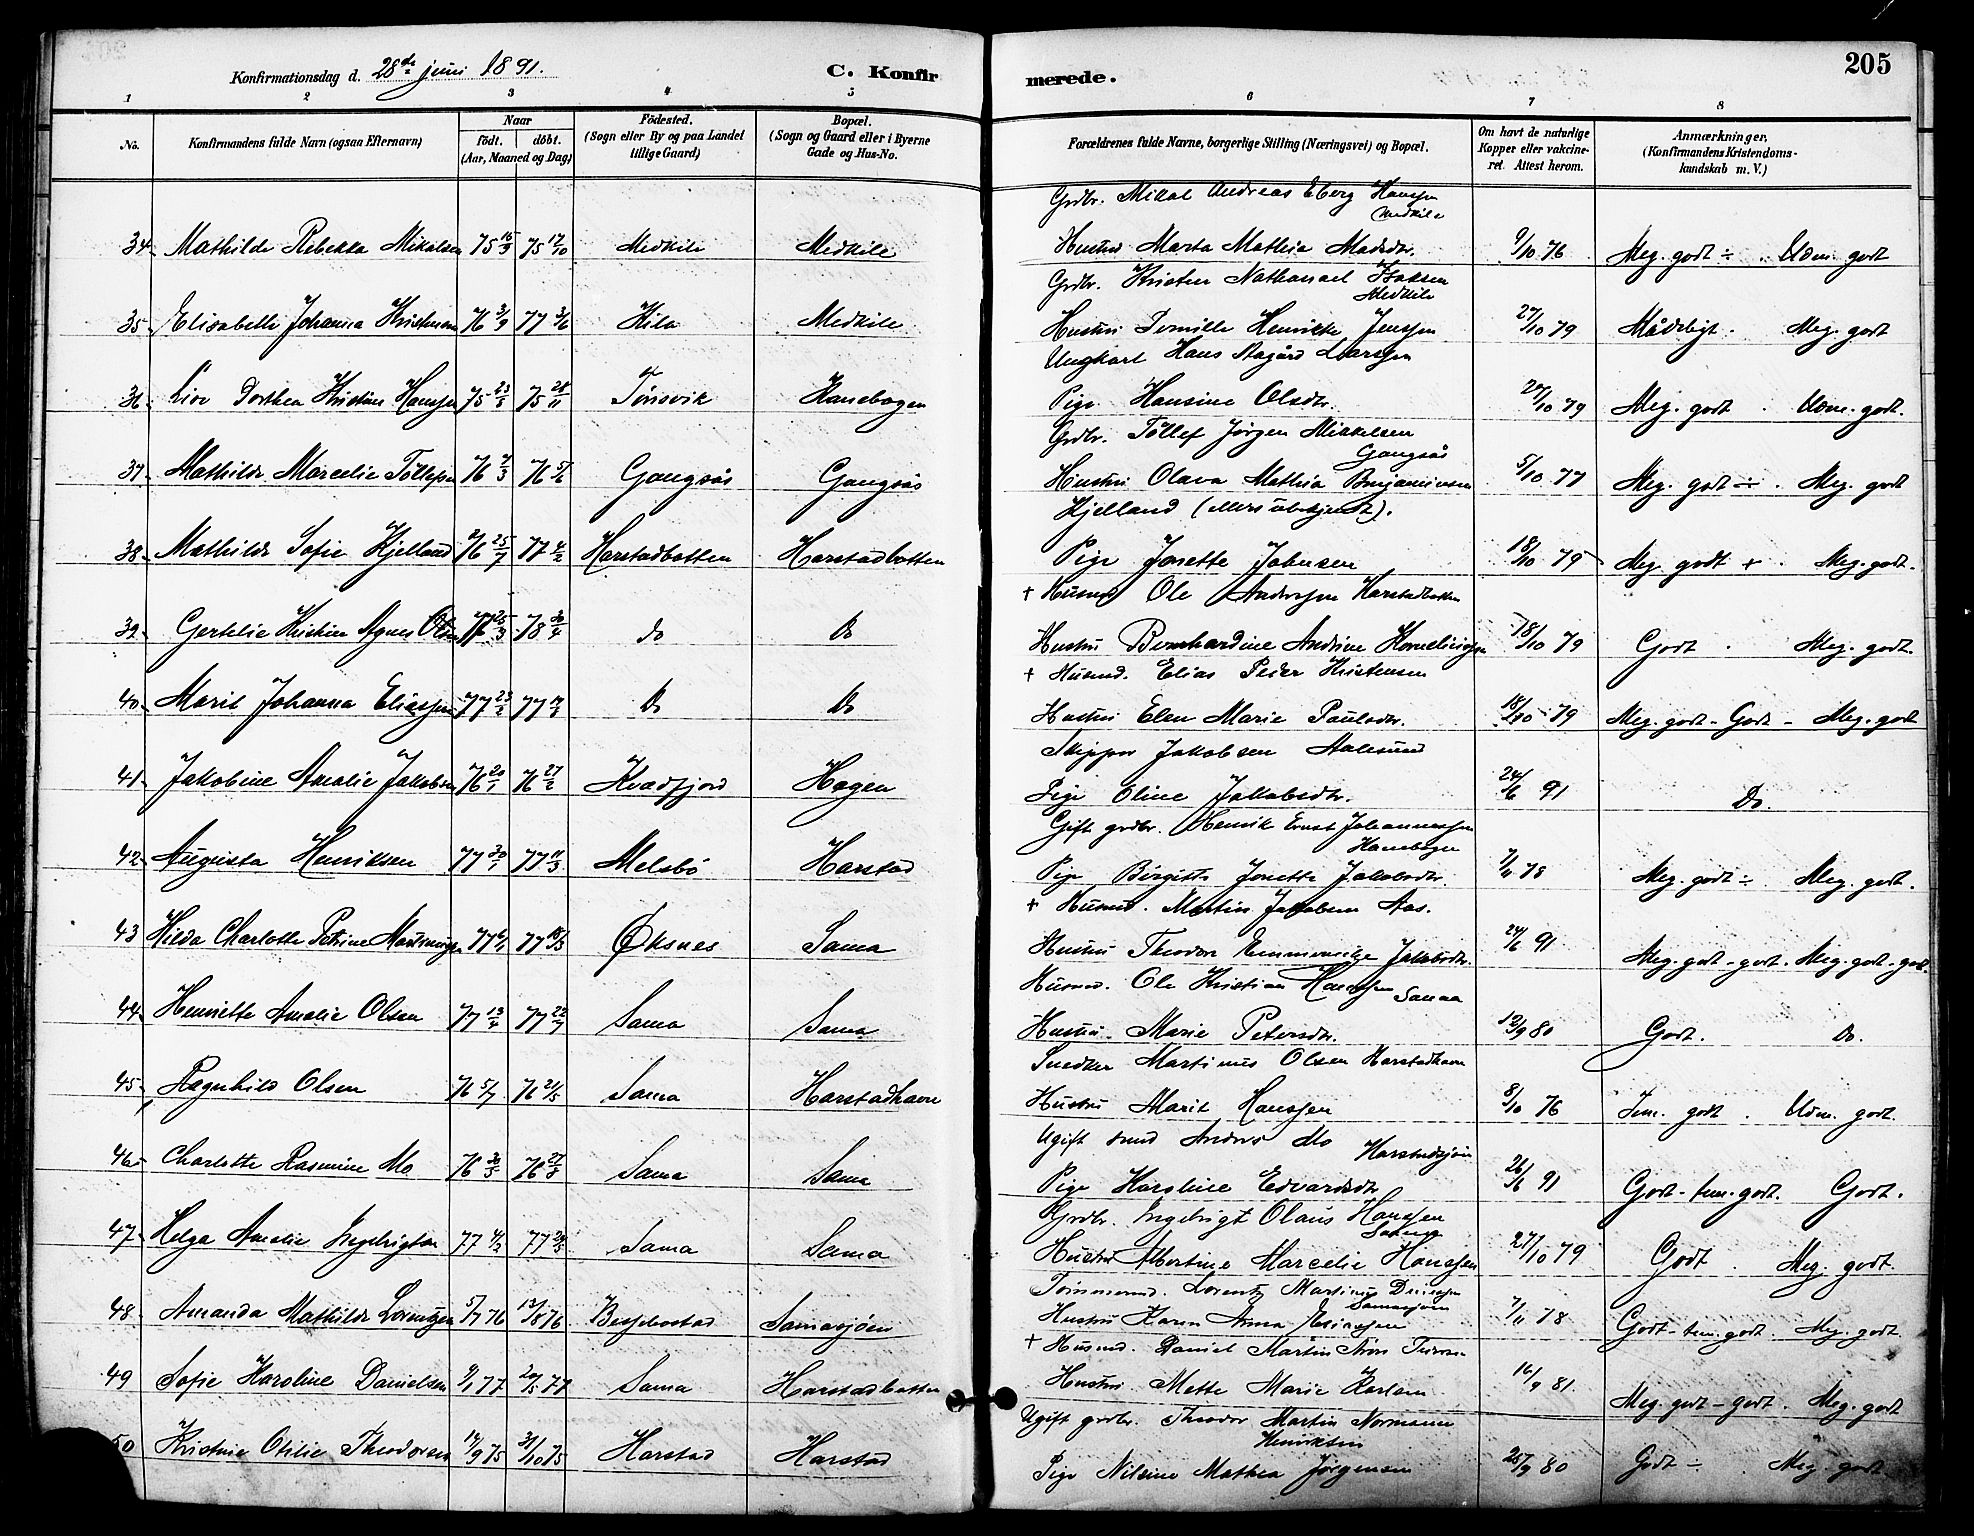 Konfirmationsdag d. 28de juni 1891. C. Konfirmerede. 205
1 2 3 4 5 6 7 8
No. Konfirmandens fulde Navn (ogsaa Efternavn) Naar født. døbt. (Aar, Maaned og Dag) Fødested. (Sogn eller By og paa Landet tillige Gaard) Bopæl. (Sogn og Gaard eller i Byerne Gade og Hus-No. Forældrenes fulde Navne, borgerlige Stilling (Næringsvei) og Bopæl. Om havt de naturlige Kopper eller vakcineret. Attest herom. Anmærkninger, (Konfirmandens Kristendomskundskab m. V.)
Grdbr. Mikal Andreas Eberg Hanssen Medkile
34 Mathilde Rebekka Mikalsen 75 16/9 75 17/10 Medkile Medkile Hustru Marta Mathea Madsdtr. 9/10 76 Meg. godt ÷ . Udm. godt
Grdbr. Kristen Nathanael Isaksen Medkile
35 Elisabeth Johanna Kristensen 76 3/9 77 3/6 Kila Medkile Hustru Pernille Henrikke Jenssen 27/10 79 Mådeligt . Meg. godt
Ungkarl Hans Aagård Larssen
36 Live Dorthea Kristine Hanssen 75 23/8 75 28/11 Tørisvik Kanebogen Pige Hansine Olsdtr. 27/10 79 Meg. godt . Udm. godt.
Grdbr. Tøllef Jørgen Mikkelsen Gangsås
37 Mathilde Marcelie Tøllefsen 76 7/3 76 5/6 Gangsås Gangsås Hustru Olava Mathea Benjaminsen 5/10 77 Meg. godt ÷ . Meg. godt
Kjelland (ellers ubekjendt).
38 Mathilde Sofie Kjelland 76 25/7 77 4/2 Harstadbotten Harstadbotten Pige Jonette Johnsen 18/10 79 Meg. godt + . Meg. godt.
+ Husmd Ole Anderssen Harstadbotten
39 Gertelie Kristine Agnes Olsen 77 25/3 78 30/4 do Do Hustru Bernhardine Andrine Korneliussen 18/10 79 Godt . Meg. godt.
+ Husmd. Elias Peder Kristensen
40 Marit Johanna Eliassen 77 23/2 77 19/3 Do Do Hustru Elen Marie Paulsdtr. 18/10 79 Meg. godt - Godt - Meg. godt
Skipper Jakobsen Aalesund
41 Jakobine Amalie Jakobsen 76 20/1 76 27/2 Kvædfjord Hagen Pige Oline Jakobsdtr. 24/6 91 Do.
Gift grdbr. Henrik Ernst Johannessen Kanebogen
42 Augusta Henriksen 77 30/1 77 11/3 Melsbø Harstad Pige Birgitte Jonette Jakobsdtr. 7/11 78 Meg. godt ÷ Meg. godt.
+ Husmd. Martin Jakobsen Aas.
43 Hilda Charlotte Petrine Martinussen 77 6/1 77 18/3 Øksnes Sama Hustru Theodore Jakobsdtr. 24/6 91 Meg. godt - godt. Meg. godt - godt.
Husmd. Ole Kristian Hanssen Sama
44 Henriette Amalie Olsen 77 13/4 77 22/7 Sama Sama Hustru Marie Petersdtr. 12/9 80 Godt. Do.
Snedker Martinus Olsen Harstadhavn
45 Ragnhild Olsen 76 5/7 76 21/5 Sama Harstadhavn Hustru Marit Hanssen 8/10 76 Tem. godt . Udm. godt.
Ugift smed Anders Mo Harstadsjøen
46 Charlotte Rasmine Mo 76 30/5 76 27/8 Sama Sama Pige Karoline Edvardsdtr 26/6 91 Godt - tem. godt. Godt.
Grdbr. Ingebrigt Olaus Hanssen Sama
47 Helga Amalie Ingebrigtsen 77 4/2 77 29/5 Sama Sama Hustru Albertine Marcelie Hanssen 27/10 79 Godt . Meg. godt.
Tømmermd. Lorentz Martinus Samasjøen
48 Amanda Mathilde Lorentzen 5/7 76 13/8 76 Bessebostad Samasjøen Hustru Karen Anna 7/11 78 Godt - tem. godt. Meg. godt.
+ Husmd. Daniel Martin
49 Sofie Karoline Danielsen 9/1 77 20/5 77 Sama Harstadbotten Hustru. Mette Marie Karlsen 16/9 81. Meg. godt - godt. Meg. godt
Ugift grdbr. Theodor Martin Normann Henriksen
50 Kristine Otilie Theodorsen 14/9 75 31/10 75 Harstad Harstad Pige Nilsine Mathea Jørgensen 25/9 80 Godt ÷ . Meg. godt